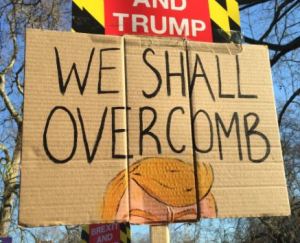 AND
TRUMP
WE SHALL
OVERCOMB
BREXIT
AND